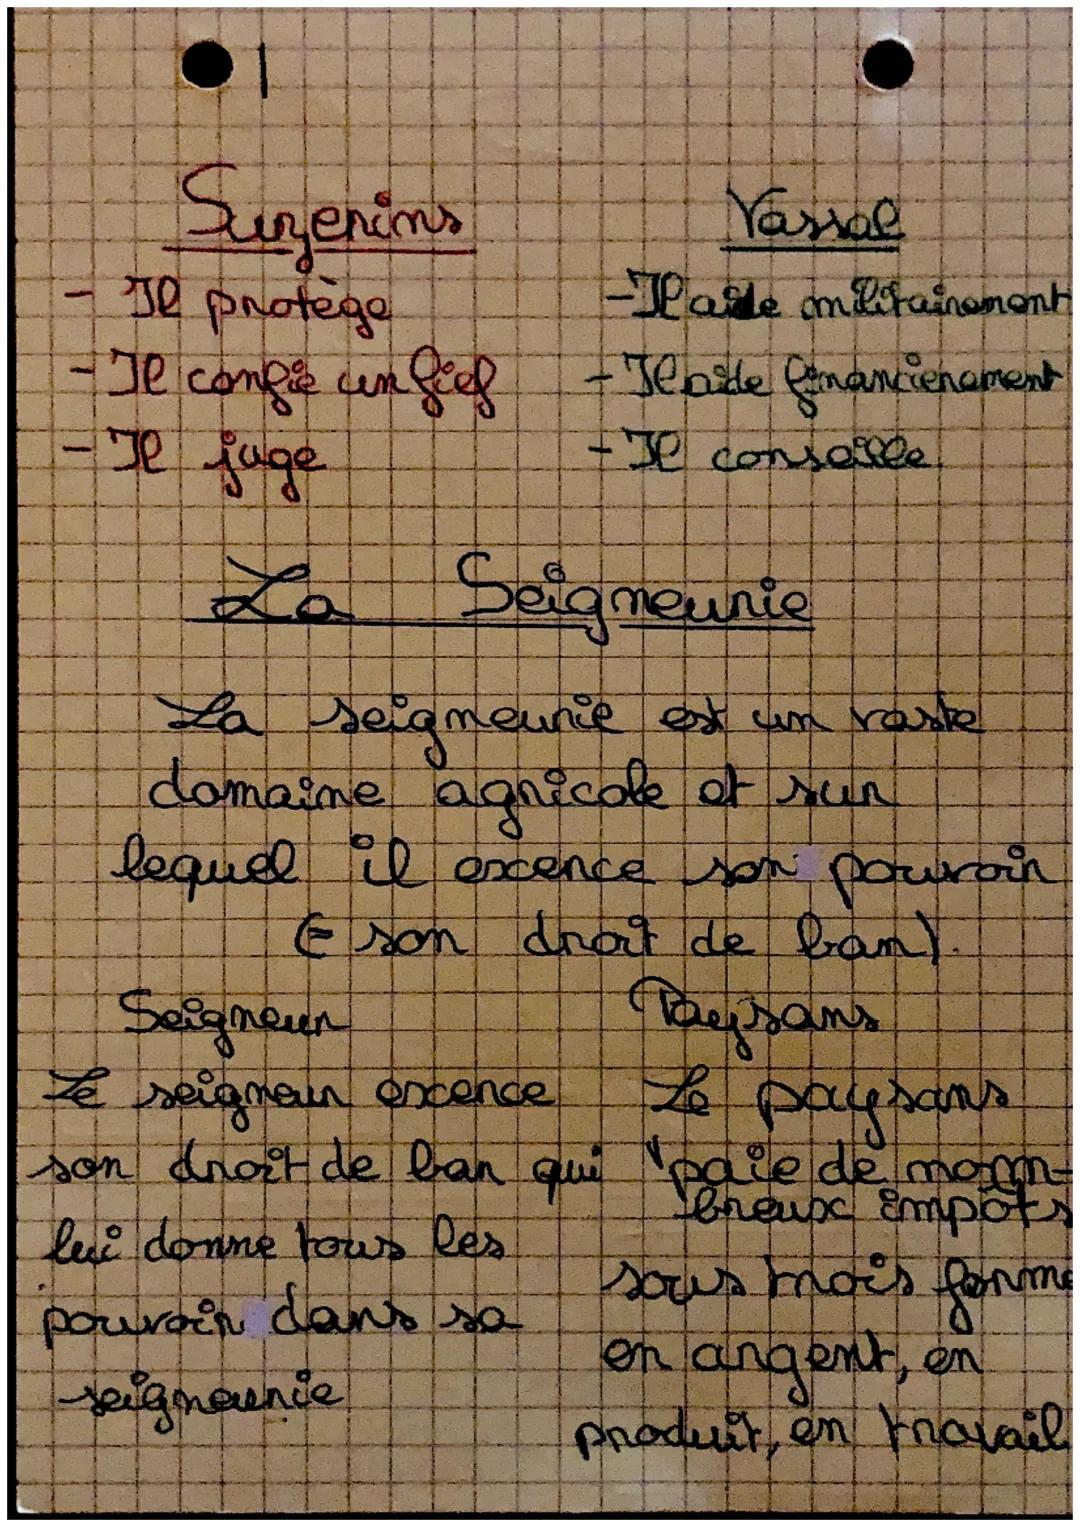 Suzerins
- Il protège
- Il confie un fief
- Il juge
Vassal
- Il aide militairement
- Il aide financièrement
- Il conseille
La Seigneurie
La seigneurie est un vaste
domaine agricole et sur
lequel il excerce son pouvoir
(= son droit de ban).
Seigneur
Le seigneur excerce
son droit de ban qui
lui donne tous les
pouvoir dans sa
seigneurie
Paysans
Le paysans
paie de nom-
breux impôts
sous trois forme
en argent, en
produit, en travail